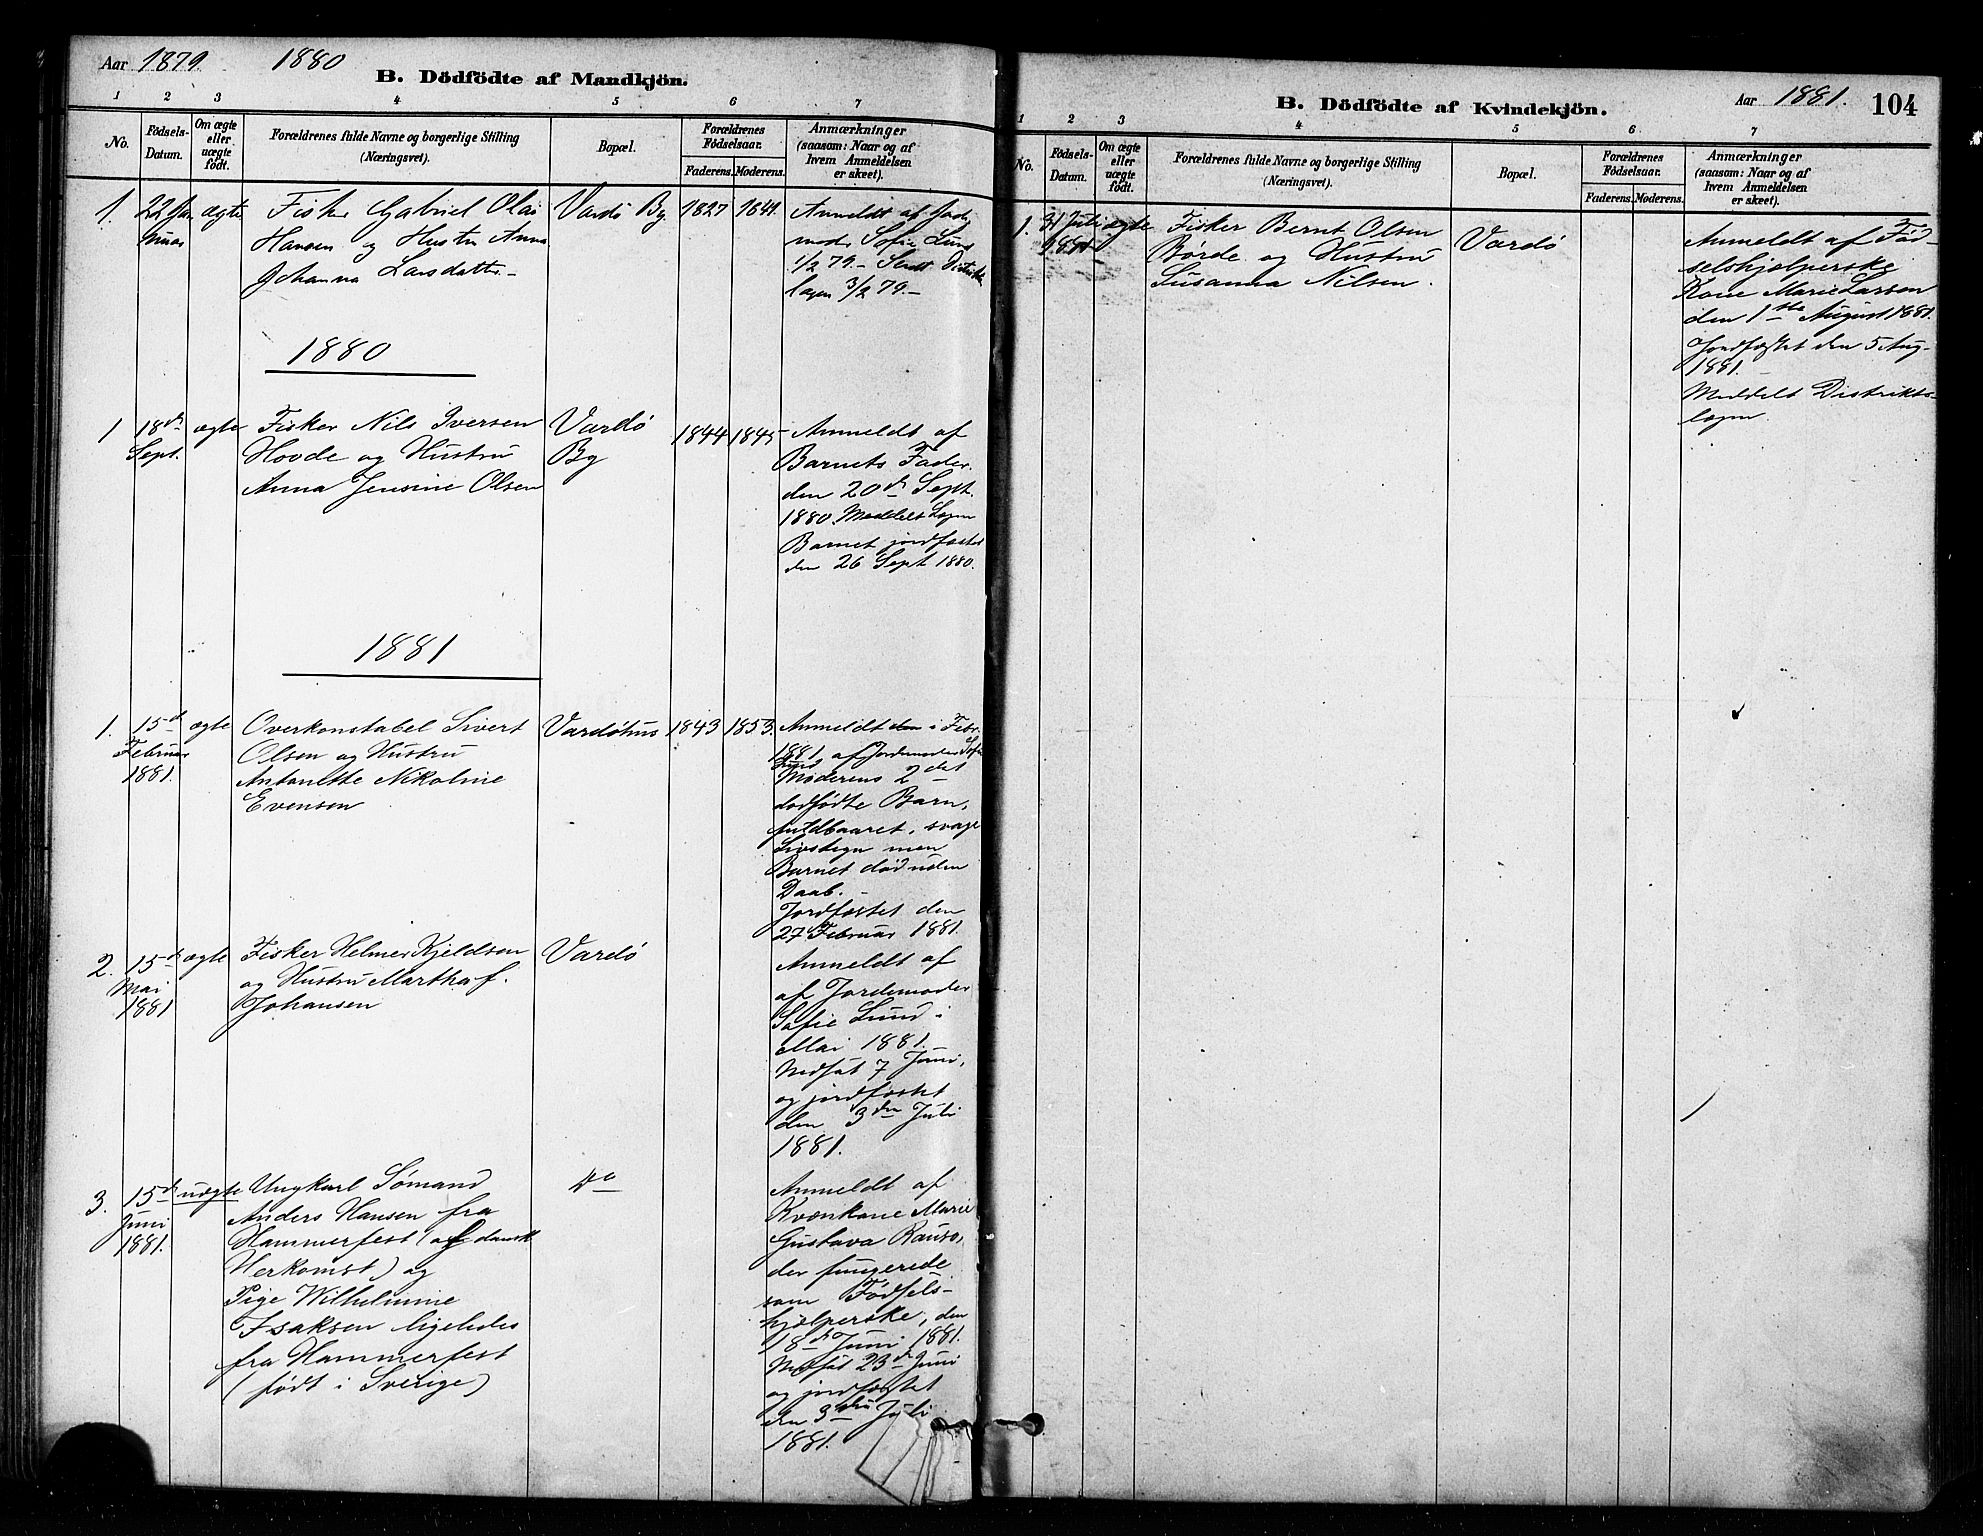 Aar 1879 1880
B. Dödfödte af Mandkjön.
1 2 3 4 5 6 7
No.
Födsels-
Datum.
Om ægte
eller
uægte
født.
Forældrenes fulde Navne og borgerlige Stilling
(Næringsvei).
Bopæl.
Forældrenes
Födselsaar.
Faderens. Moderens.
Anmærkninger
(saasom: Naar og af
hvem Anmeldelsen
er skeet).
1. 22 Ja-
nuar
ægte
Fisker Gabriel Olai
Hansen og Hustru Anna
Johanna Larsdatter.
Vardö By
1827 1841
Anmeldt af Jorde-
moder Sofie Lund
1/2 79. – Sendt Distrikts
lægen 3/2 79. –
1880
1 18de
Sept.
ægte
Fisker Nils Iversen
Hovde og Hustru
Anna Jensine Olsen
Vardö
By
1844 1845
Anmeldt af
Barnets Fader
den 20de Sept.
1880. Meddelt Lægen
Barnet jordfæstet
den 26 Sept 1880.
1881
1. 15d
Februar
1881.
ægte
Overkonstabel Sivert
Olsen og Hustru
Antonette Nikoline
Evensen
Vardöhus
1843 1853.
Anmeldt den i Febr.
1881 af Jordemoder Sofie
Lund
Moderens 2det
dødfödte Barn,
fuldbaaret, svage
Livstegn men
Barnet död uden
Daab.
Jordfæstet den
27 Februar 1881.
2. 15d
Mai
1881
ægte
Fisker Helmer Kjeldsen
og Hustru Martha f.
Johansen
Vardö
Anmeldt af
af Jordemoder
Sofie Lund i
Mai 1881.
Nedsat 7 Juni,
og jordfæstet
den 3den Juli
1881.
3. 15d
Juni
1881.
uægte
Ungkarl Sømand
Anders Hansen fra
Hammerfest (af dansk
Herkomst) og
Pige Wilhelmine
Isaksen ligeledes
fra Hammerfest
(født i Sverige)
do
Anmeldt af
Kvænkone Marie
Gustava
der fungerede
som Fødsels-
hjælperske, den
18d Juni 1881.
Nedsat 23d Juni
og jordfæstet
den 3den Juli
1881.
B. Dödfödte af Kvindekjön.
Aar 1881.
104
1 2 3 4 5 6 7
No.
Födsels-
Datum.
Om ægte
eller
uægte
født.
Forældrenes fulde Navne og borgerlige Stilling
(Næringsvei).
Bopæl.
Forældrenes
Födselsaar.
Faderens. Moderens.
Anmærkninger
(saasom: Naar og af
hvem Anmeldelsen
er skeet).
1. 31 Juli
1881
ægte
Fisker Bernt Olsen
Børde og Hustru
Susanna Nilsen.
Vardö
Anmeldt af Fød-
selshjælperske
Kone Marie Larsen
den 1ste August 1881.
Jordfæstet den 5 Aug.
1881.
Meddelt Distrikts-
lægen.